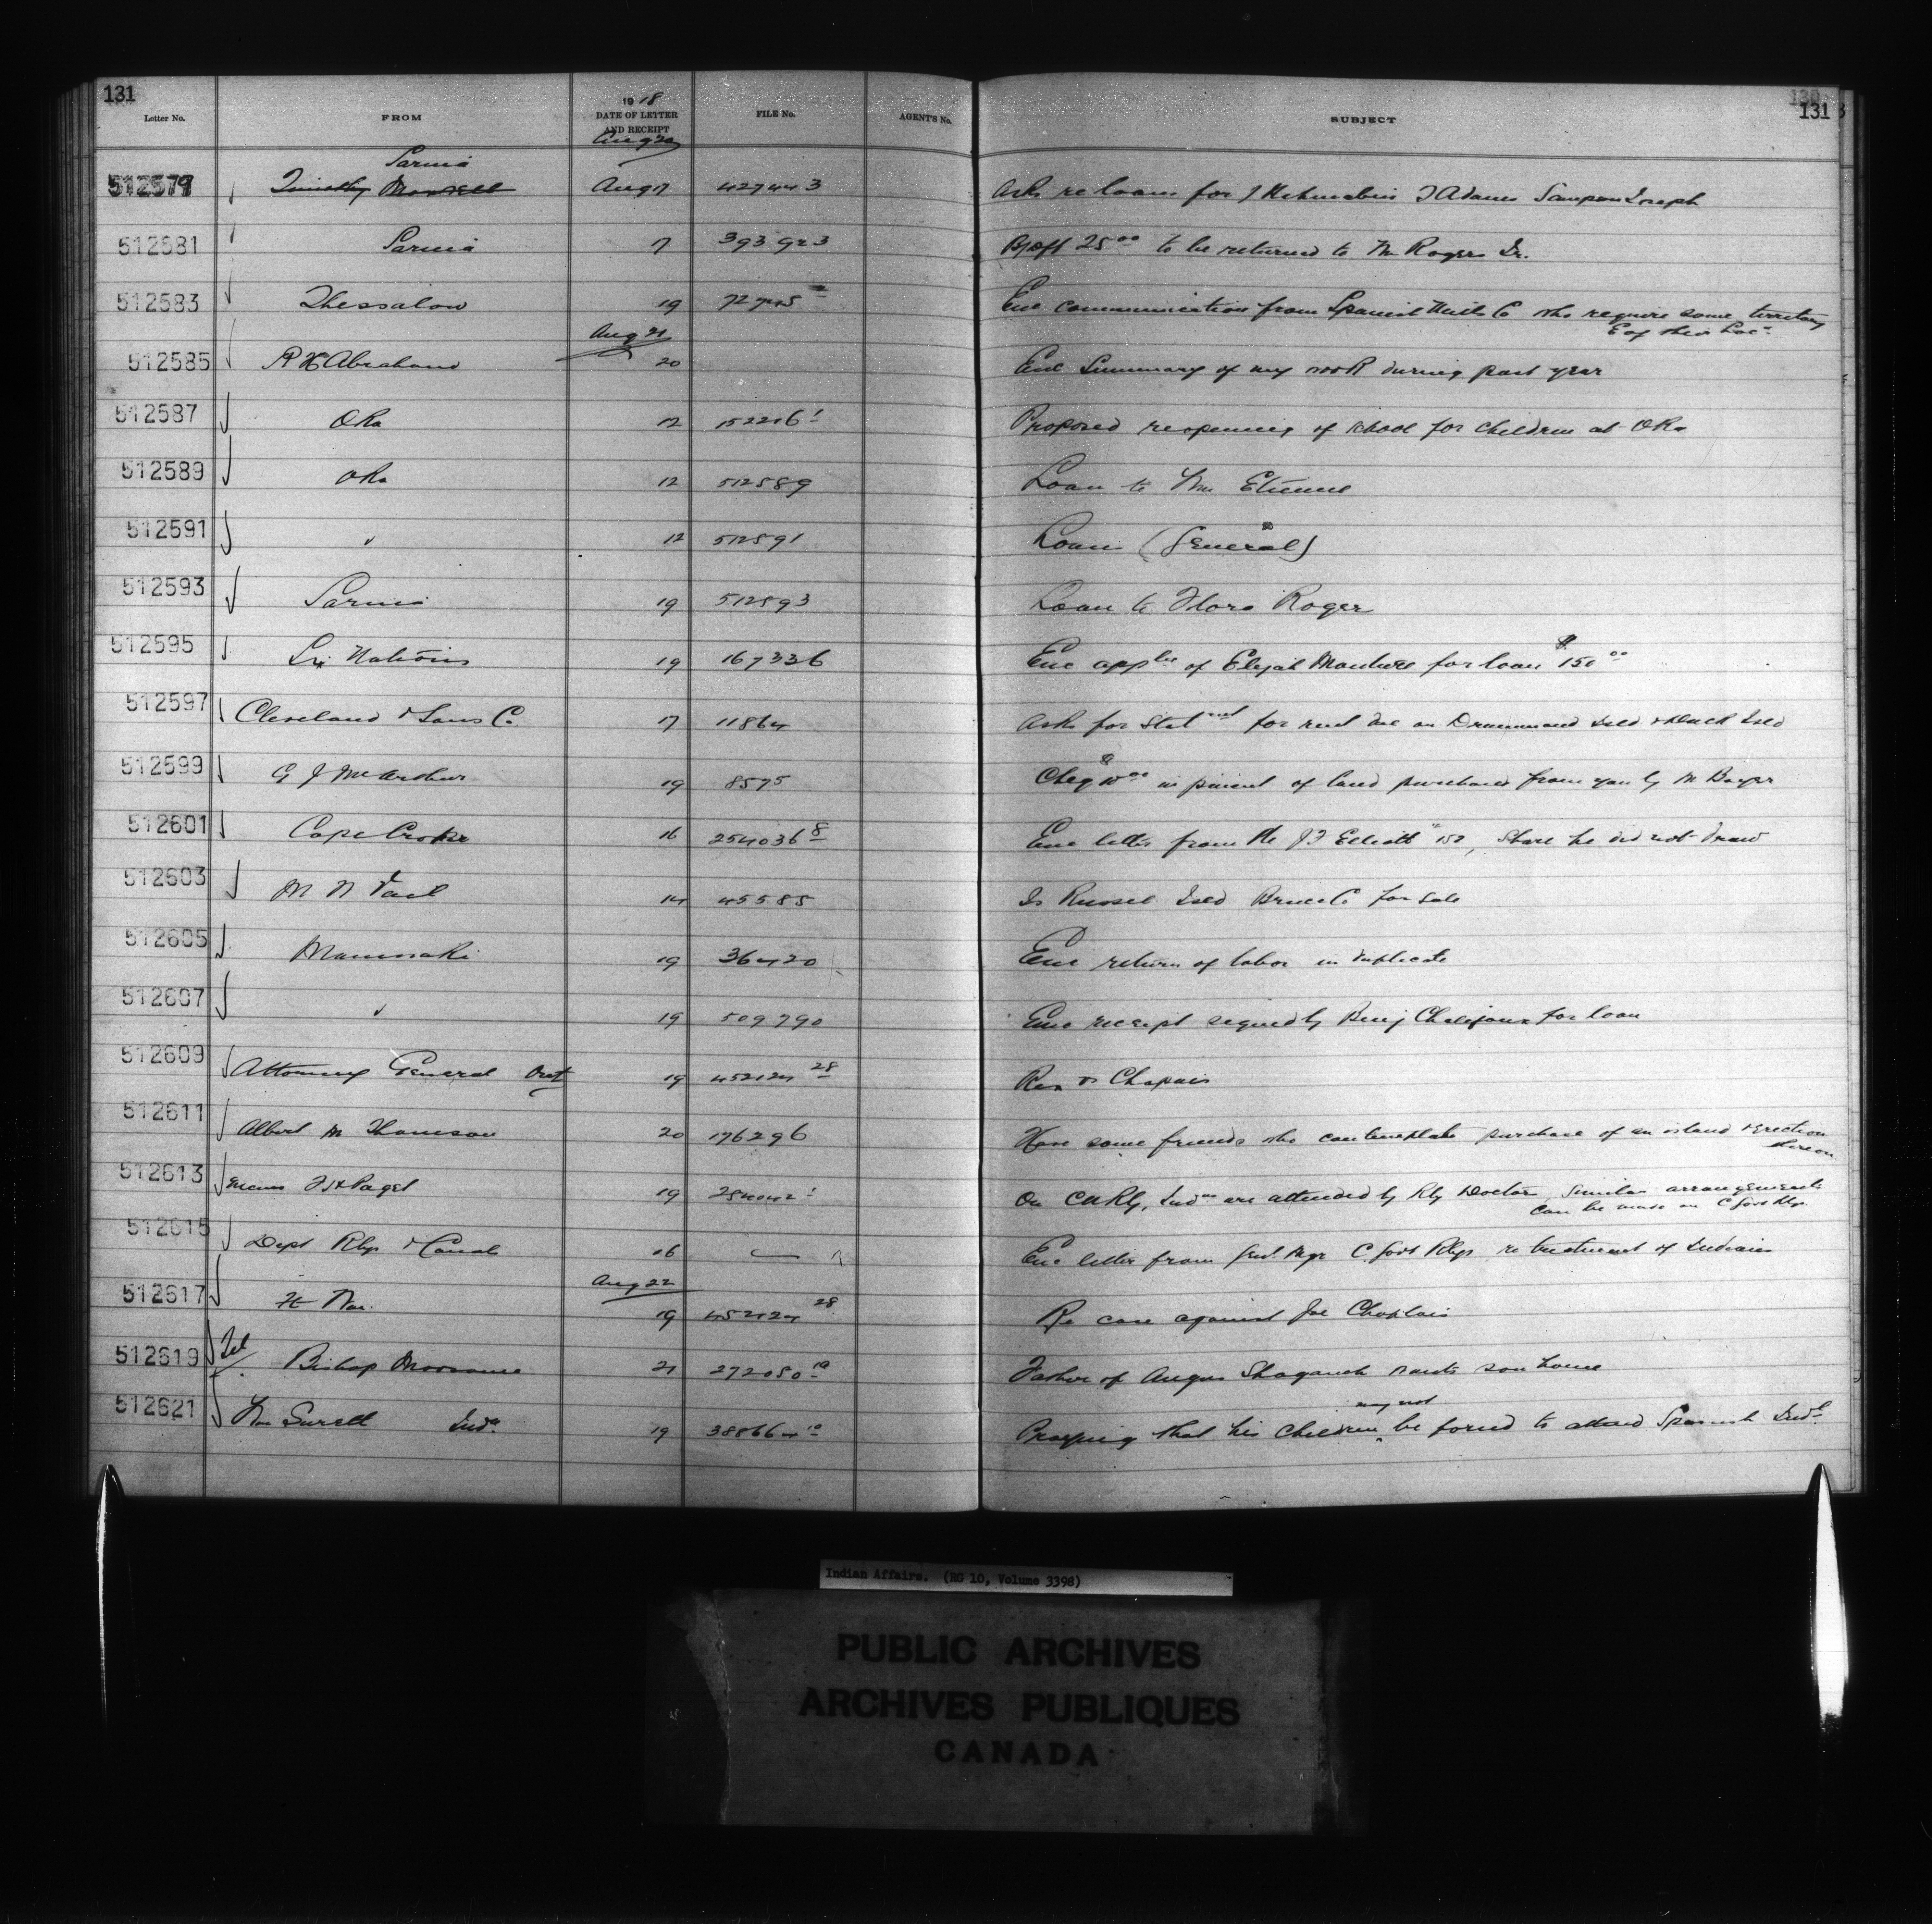 131
131
Letter No. FROM 1918 DATE OF LETTER AND RECEIPT FILE No. AGENT'S No. SUBJECT
Aug 20
Sarnia
512579 Timothy Maxwell Aug 17 427443 Asks re loans for J Adams Sampson Joseph
512581 Sarnia 17 393923 25 00 to be returned to Wm Rogers Sr.
512583 Thessalon 19 Enc communication from Spanish Mills Co who require some territory
E of their Loc n
Aug 21
512585 R H Abraham 20 Enc Summary of my work during past year
512587 Oka 12 152216 1 Proposed reopening of school for children at Oka
512589 Oka 12 512589 Loan to Wm Etienne
512591 " 12 512591 Loans (General)
512593 Sarnia 19 512593 Loan to Flora Roger
512595 Six Nations 19 167336 Enc of Elijah for loan $150 00
512597 Cleveland & Sons Co 17 11864 Asks for Stat ment for rent due on Drummond Isld & Duck Isld
512599 G J McArthur 19 8575 Cheq 10 00 in of land purchased from you by M
512601 Cape Croker 16 254036 8 Enc letter from J F Elliott Share he did not draw
512603 M N Vail 14 45585 Is Russel Isld Bruce Co for Sale
512605 Maniwaki 19 36420 Enc return of labor in duplicate
512607 " 19 509790 Enc receipt signed by Benj Chalifoux for loan
512609 Attorney General Ont 19 452124 28 Rex vs
512611 Albert M Thomson 20 176296 Have some friends who contemplate purchase of an island & erection
thereon
512613 19 254042 1 On C N Rly, Ind ns are attended by Rly Doctor, similar arrangements
can be made on C Govt Rlys
512615 Dept Rlys & Canals 16 Enc letter from Genl Mgr C. Govt Rlys re treatment of Indians
Aug 22
512617 Ft 19 452124 28 Re case against Joe
512619 Tel Bishop Moosonee 21 272080 10 Father of Angus wants son home
may not
512621 Wm Ind n. 19 388664 10 Praying that his children be forced to attend Spanish Ind l
Indian Affairs. (RG 10, Volume 3398)
PUBLIC ARCHIVES
ARCHIVES PUBLIQUES
CANADA